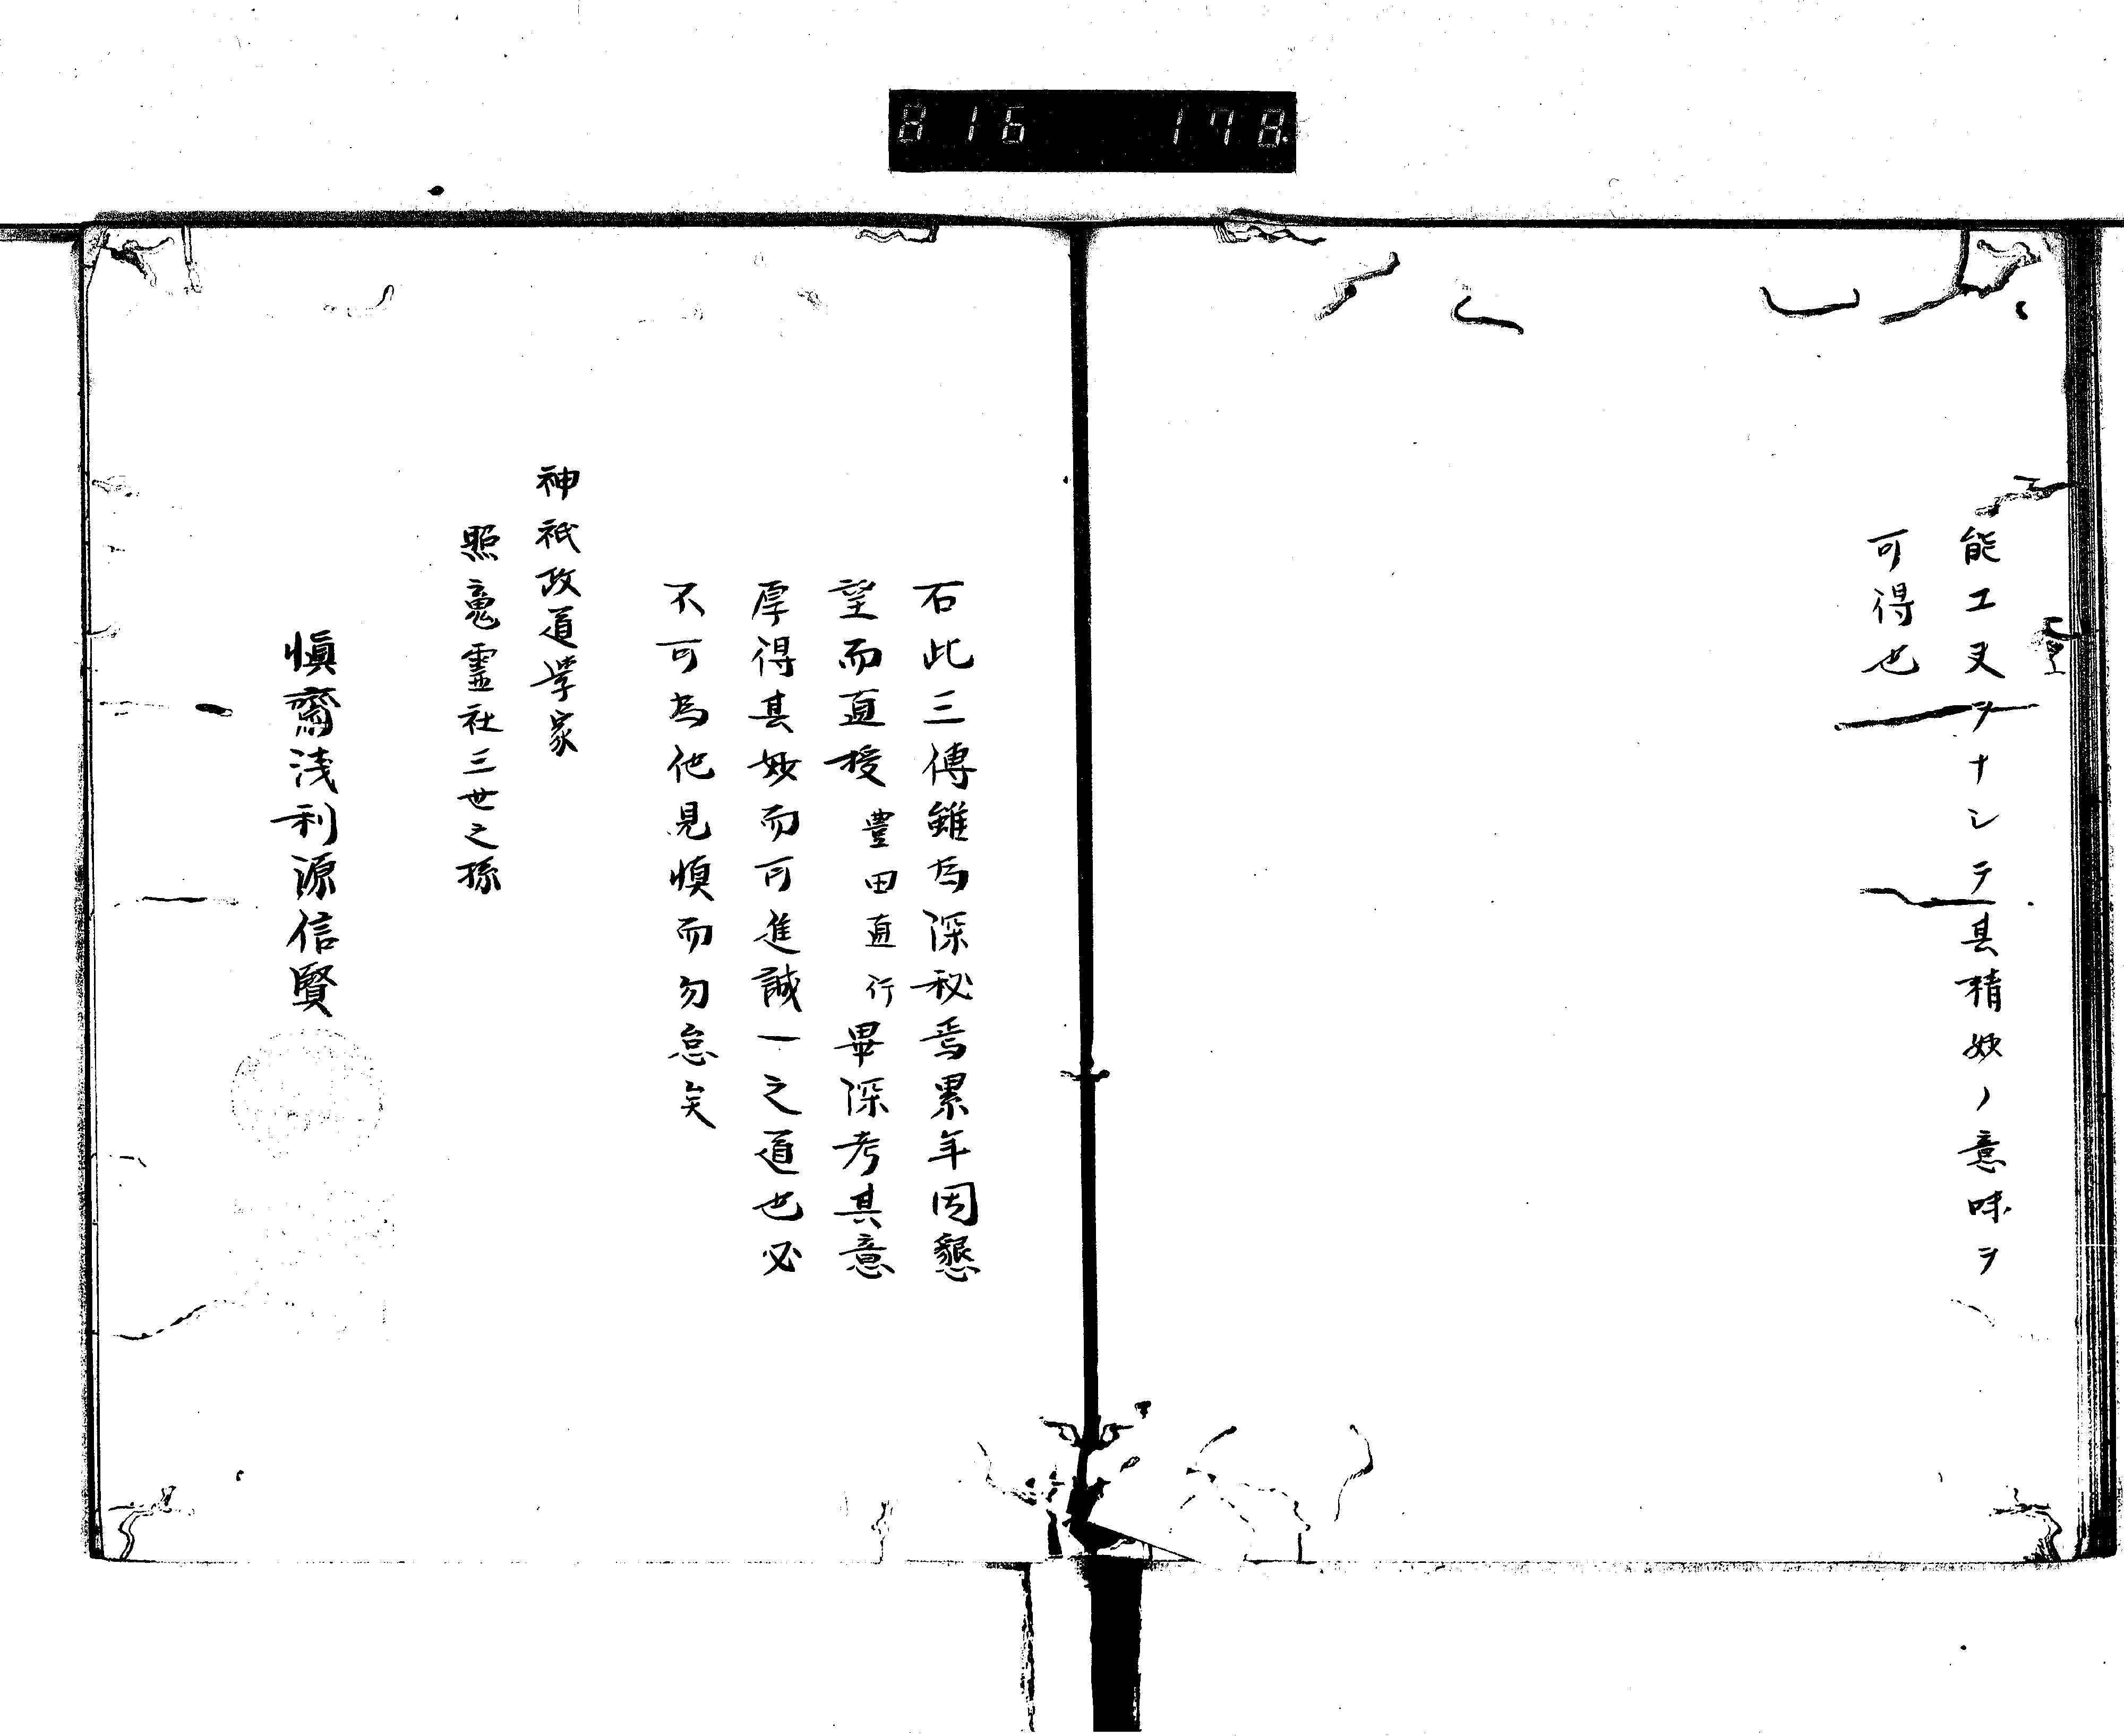 816 178
能工叉ヲナシテ其精妙ノ意味ヲ
可得也
右此三傳雖為深秘焉累年因懇
望而直授豊田直行畢深考其意
厚得其妙而可進誠一之道也必
不可為他見慎而勿怠矣
神祇政道学家
照竟靈社三世之孫
慎齋浅利源信賢